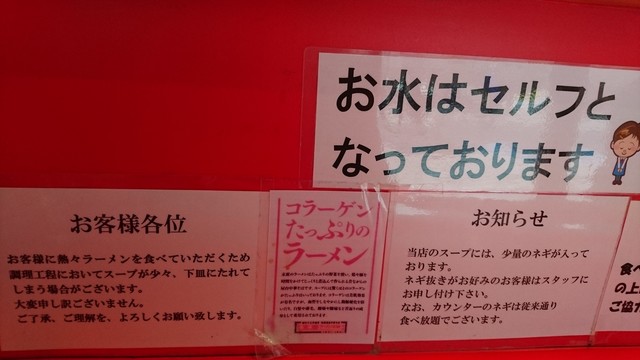 お水はセルフと
なっております
お客様各位
お客様に熱々ラーメンを食べていただくため
調理工程においてスープが少々、下皿にたれて
しまう場合がございます。
大変申し訳ございません。
ご了承、ご理解を、よろしくお願い致します。
コラーゲン
たっぷりの
ラーメン
お知らせ
当店のスープには、少量のネギが入って
おります。
ネギ抜きがお好みのお客様はスタッフに
お申し付け下さい。
なお、カウンターのネギは従来通り
食べ放題でございます。
食べ
の上
ご協力